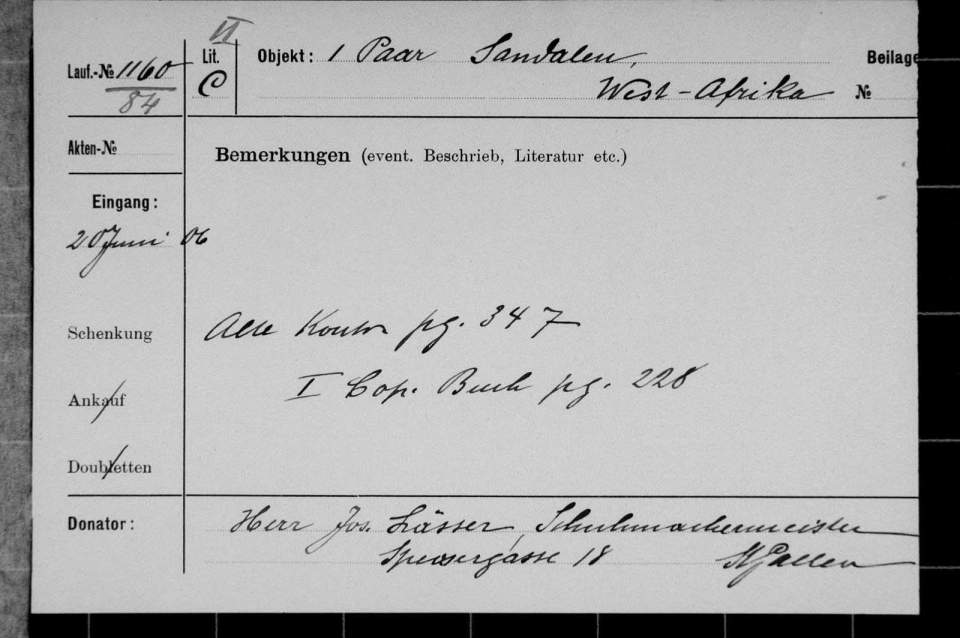 VI
Lauf.-№ 1160
84
Lit.
C
Objekt: 1 Paar Sandalen,
West-Afrika
Beilage
№
Akten-№
Bemerkungen (event. Beschrieb, Literatur etc.)
Eingang:
20 Juni 06
Schenkung
Ankauf
Doubletten
Alte Kontr pg. 347
I Cop. Buch pg. 228
Donator:
Herr Jos. Lässer, Schuhmachermeister
Speisergasse 18 St Gallen